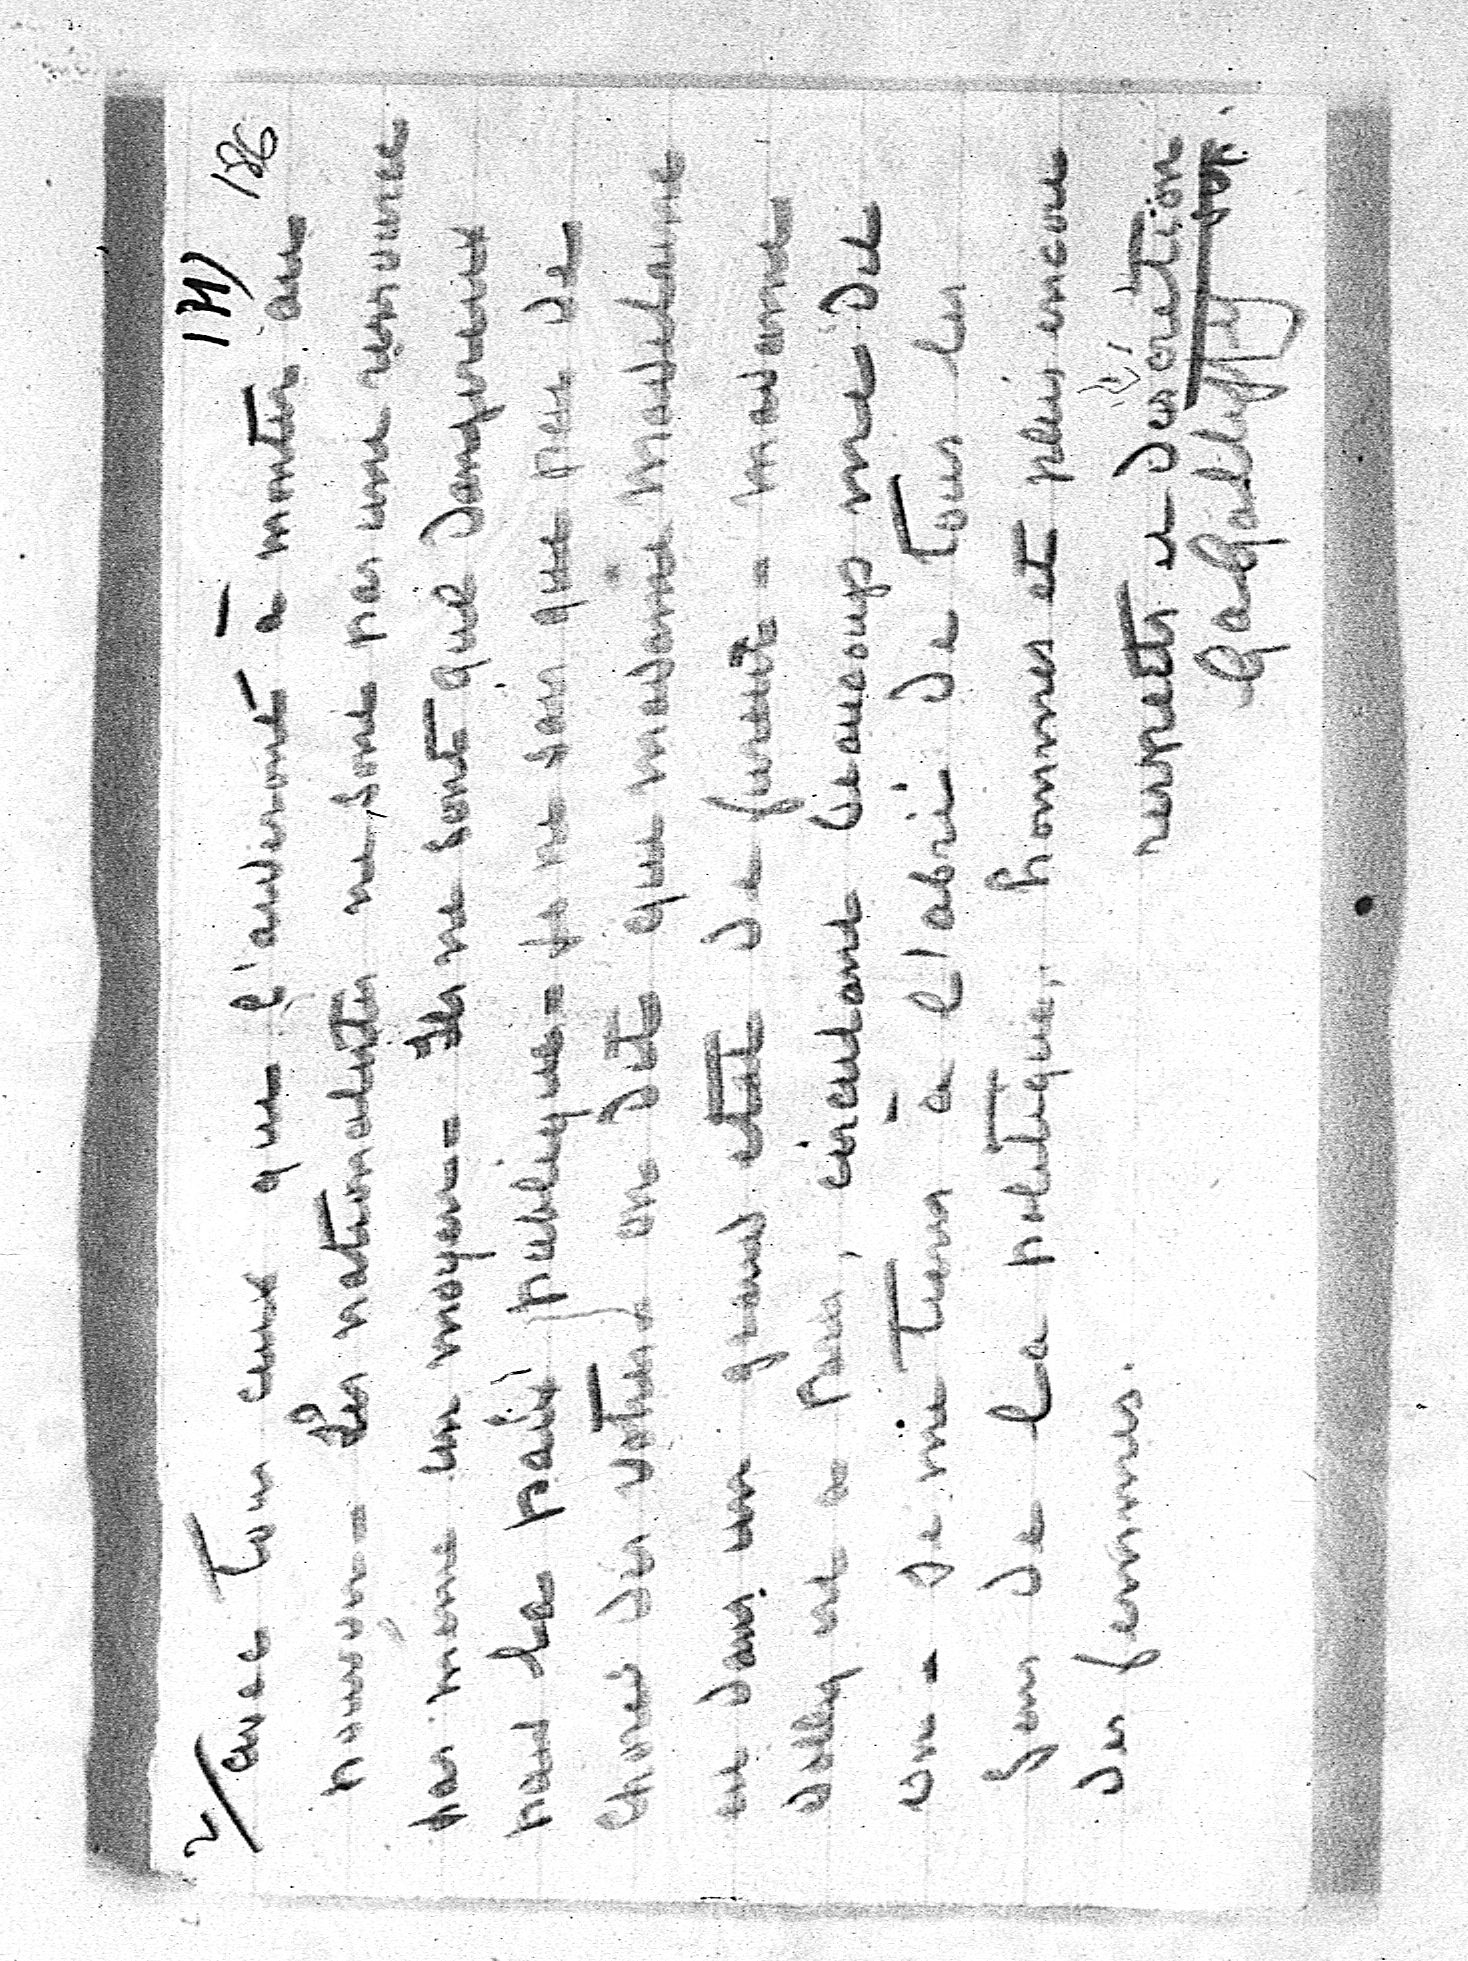 171) 186
2/ avec tous ceux qui l'aideront à monter au
pouvoir = Les nationalistes ne sont pas une ressource
pas meme un moyen = Ils ne sont que dangereux
pour la paix publique = Je ne sais que peu de
choses des votres = on dit que madame madeleine
est dans un grand etat de fureur = madame
Dolly est a Paris, circulant beaucoup me dit
on = Je me tiens à l'abri de tous les
gens de la politique, hommes et plus encore
des femmes.
respects et
Gal Galliffet